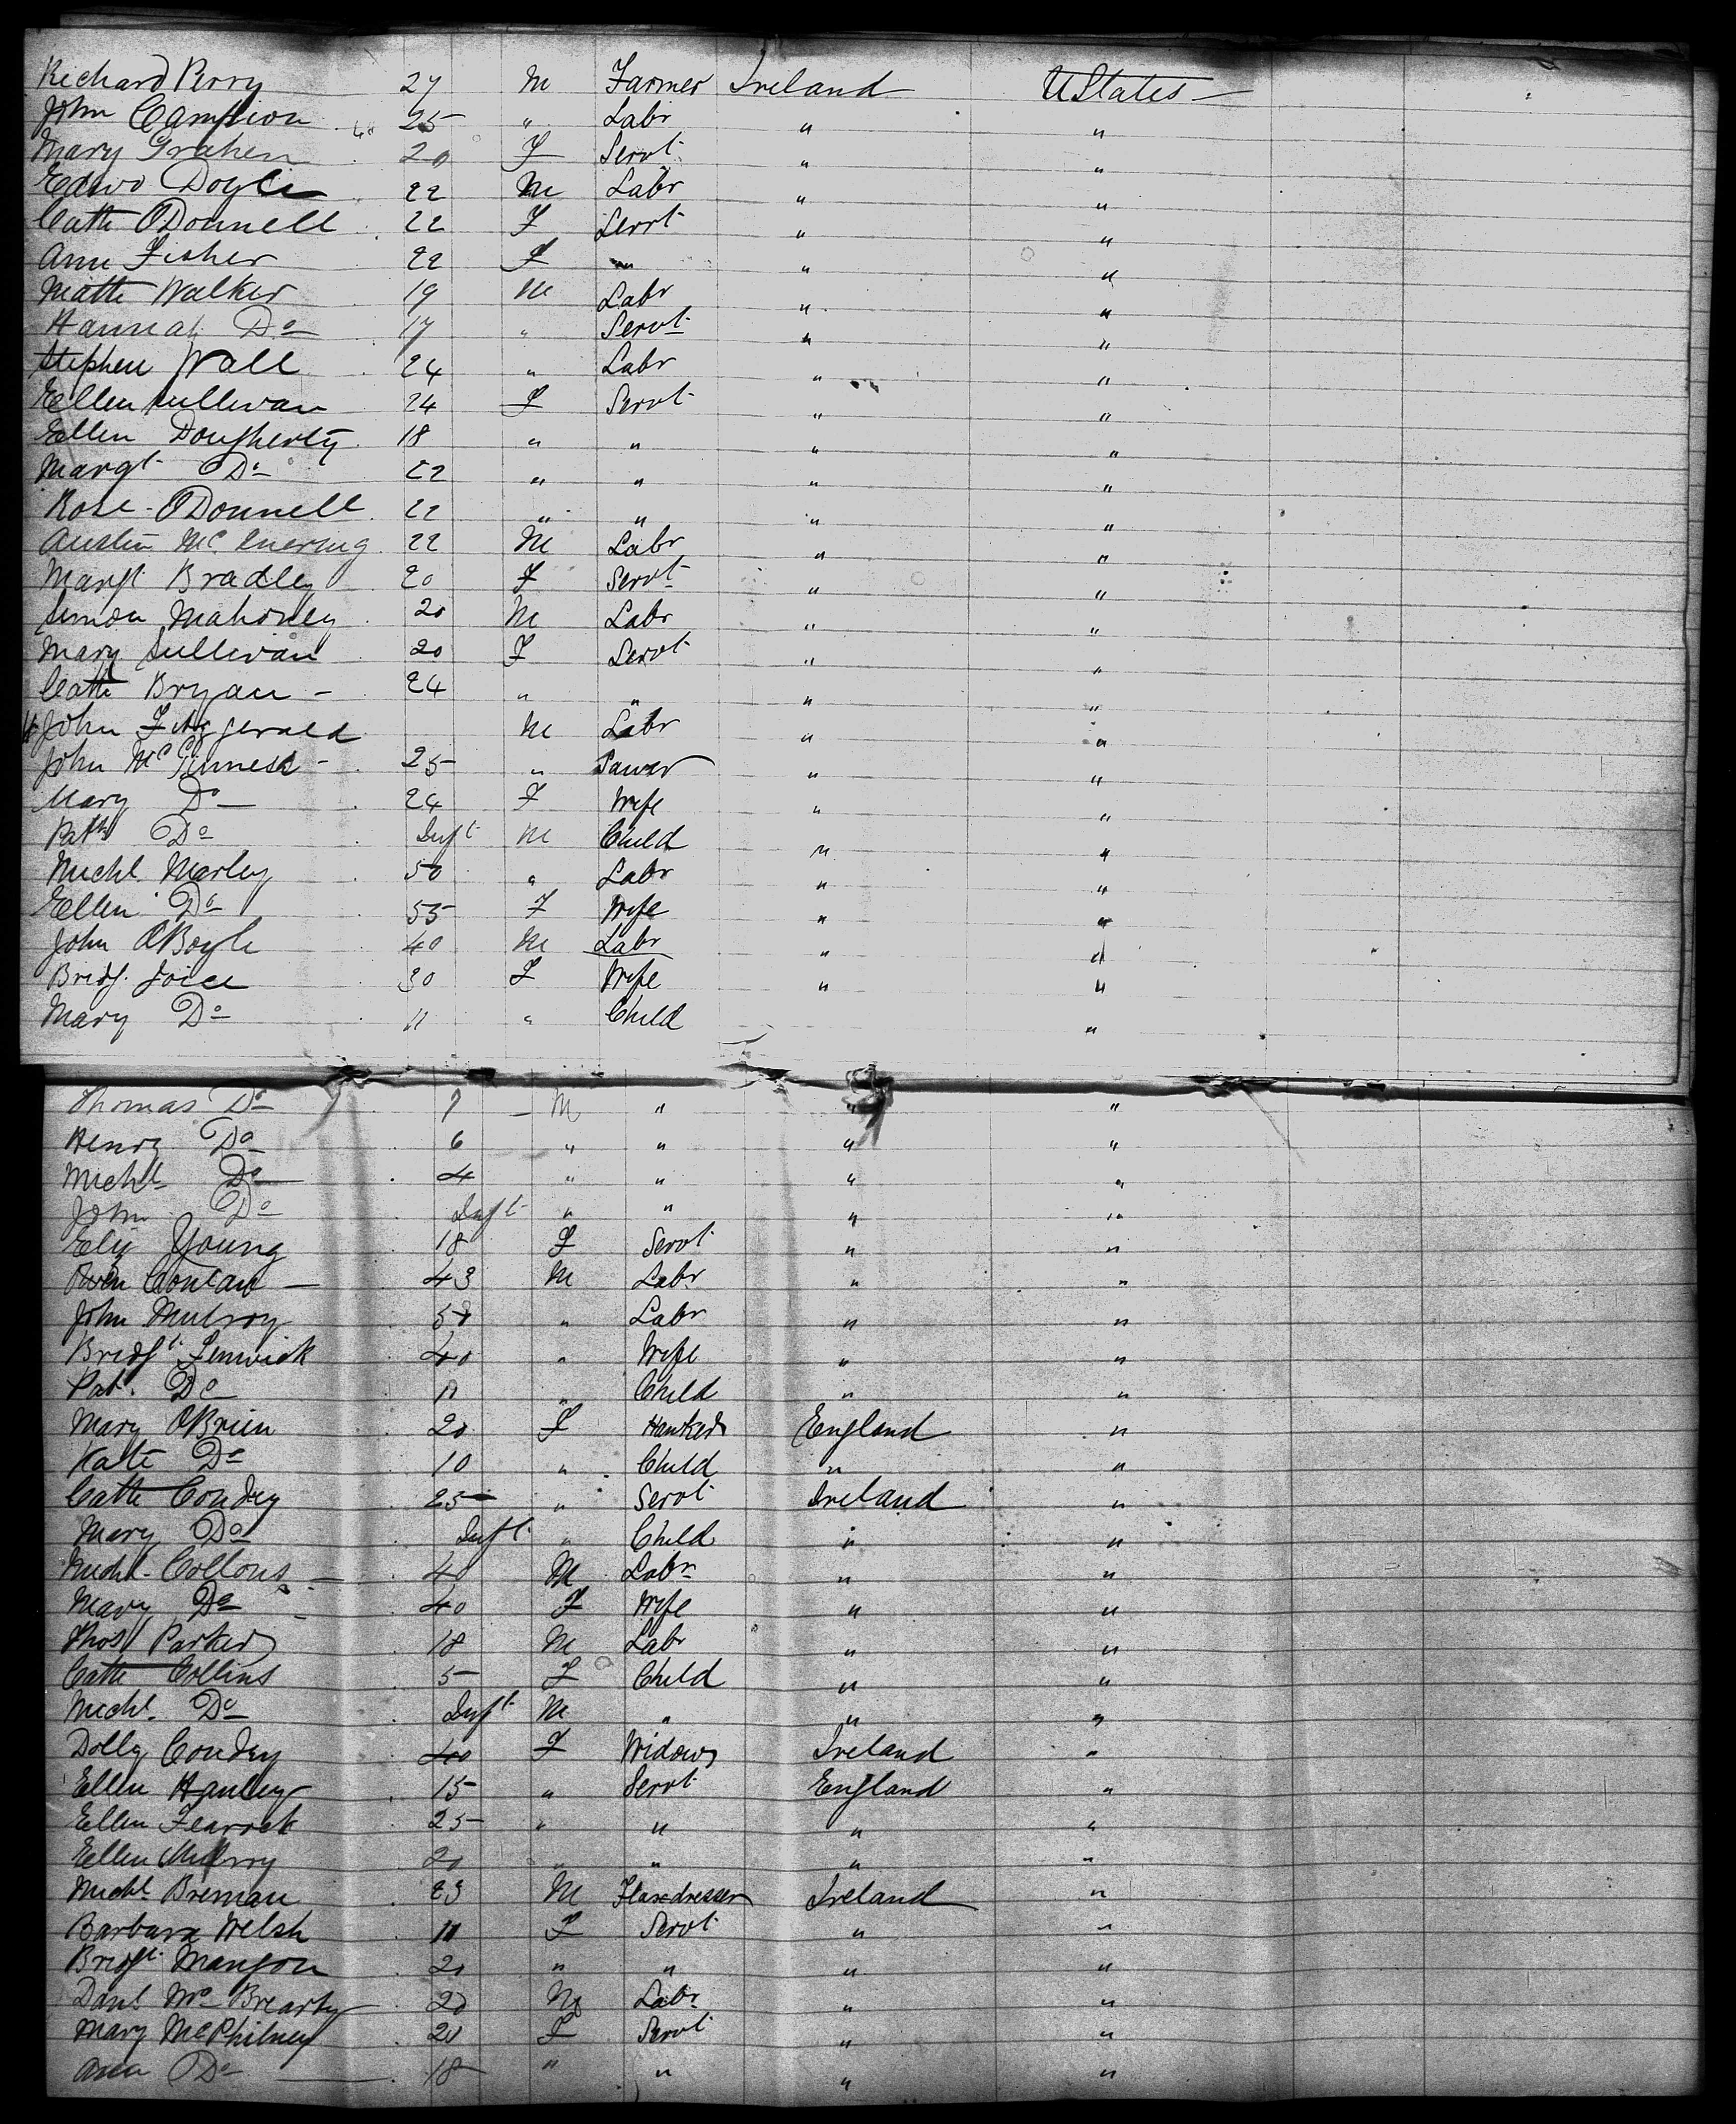 Richard Perry 27 M Farmer Ireland UStates
John Campion 25 " Labr " "
Mary Grahen 20 F Servt " "
Edwd Doyle 22 M Labr " "
Cath ODonnell 22 F Servt " "
Ann Fisher 22 F " " "
Matth Walker 19 M Labr " "
Hannah Do 17 " Servt " "
Stephen Wall 24 " Labr " "
Ellen Sullivan 24 F Servt " "
Ellen Dougherty 18 " " " "
Margt Do 22 " " " "
Rose ODonnell 22 " " " "
Austin Mc 22 M Labr " "
Margt Bradley 20 F Servt " "
Simon Mahoney 20 M Labr " "
Mary Sullivan 20 F Servt " "
Cath Bryan 24 " " " "
John Fitzgerald M Labr " "
John McGinness 25 " Sawer " "
Mary Do 24 F Wife " "
Patk Do Inft M Child " "
Michl Marley 50 " Labr " "
Ellen Do 55 F Wife " "
John OBoyle 40 M Labr " "
Bridg. Joice 30 F Wife " "
Mary Do 11 " Child "
Thomas Do 7 M " " "
Henry Do 6 " " " "
Michl Do 4 " " " "
John Do Inft " " " "
Eliz Young 18 F Servt " "
Owen Conlan 43 M Labr " "
John Mulroy " Labr " "
Bridgt Fenwick 40 " Wife " "
Pat. Do 11 " Child " "
Mary OBrien 20 F Hawker England "
Kate Do 10 " Child " "
Cath Condry 25 " Servt Ireland "
Mary Do Inft " Child " "
Michl Collons 40 M Labr " "
Mary Do 40 F Wife " "
Thos Parker 18 M Labr " "
Cath Collins 5 F Child " "
Michl. Do Inft M " " "
Dolly Condry 40 F Widow Ireland "
Ellen Hanley 15 " Servt England "
Ellen 25 " " " "
Ellen Mulroy 20 " " " "
Michl Brennan 23 M Flaxdresser Ireland "
Barbara Welsh 11 F Servt " "
Bridgt Mangon 20 " " " "
Danl Mc Brearty 20 M Labr " "
Mary McPhilney 20 F Servt " "
Ann Do 18 " " " "